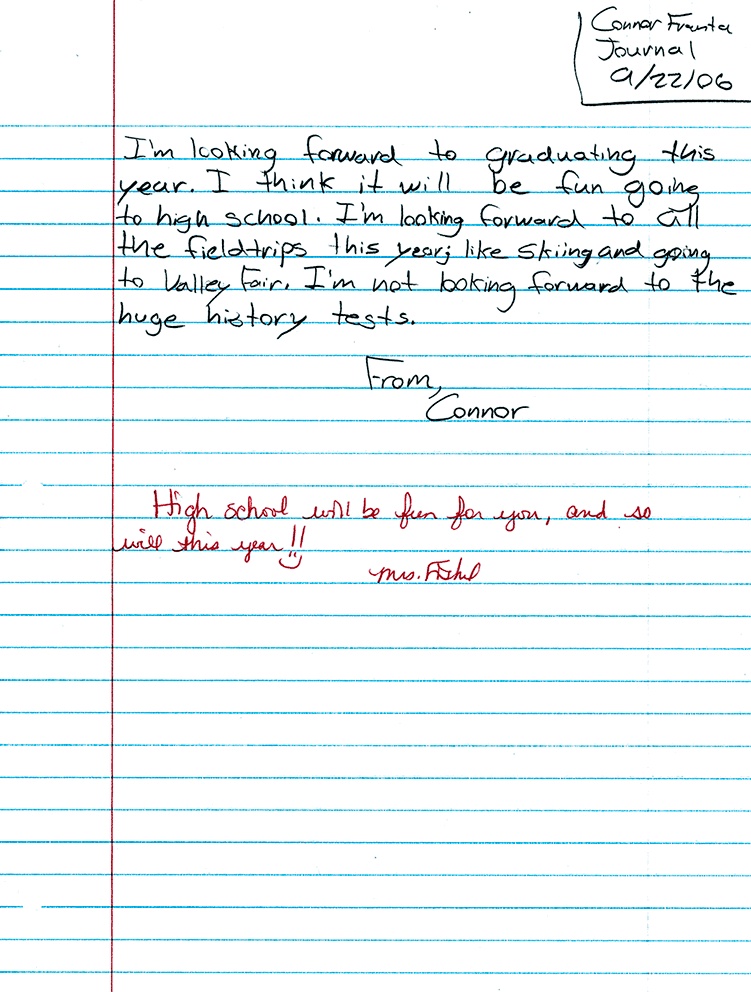 Connor Franta
Journal
9/22/06
I'm looking forward to graduating this
year. I think it will be fun going
to high school. I'm looking forward to all
the fieldtrips this year; like skiing and going
to Valley Fair. I'm not looking forward to the
huge history tests.
From,
Connor
High school will be fun for you, and so
will this year!!
Mrs.